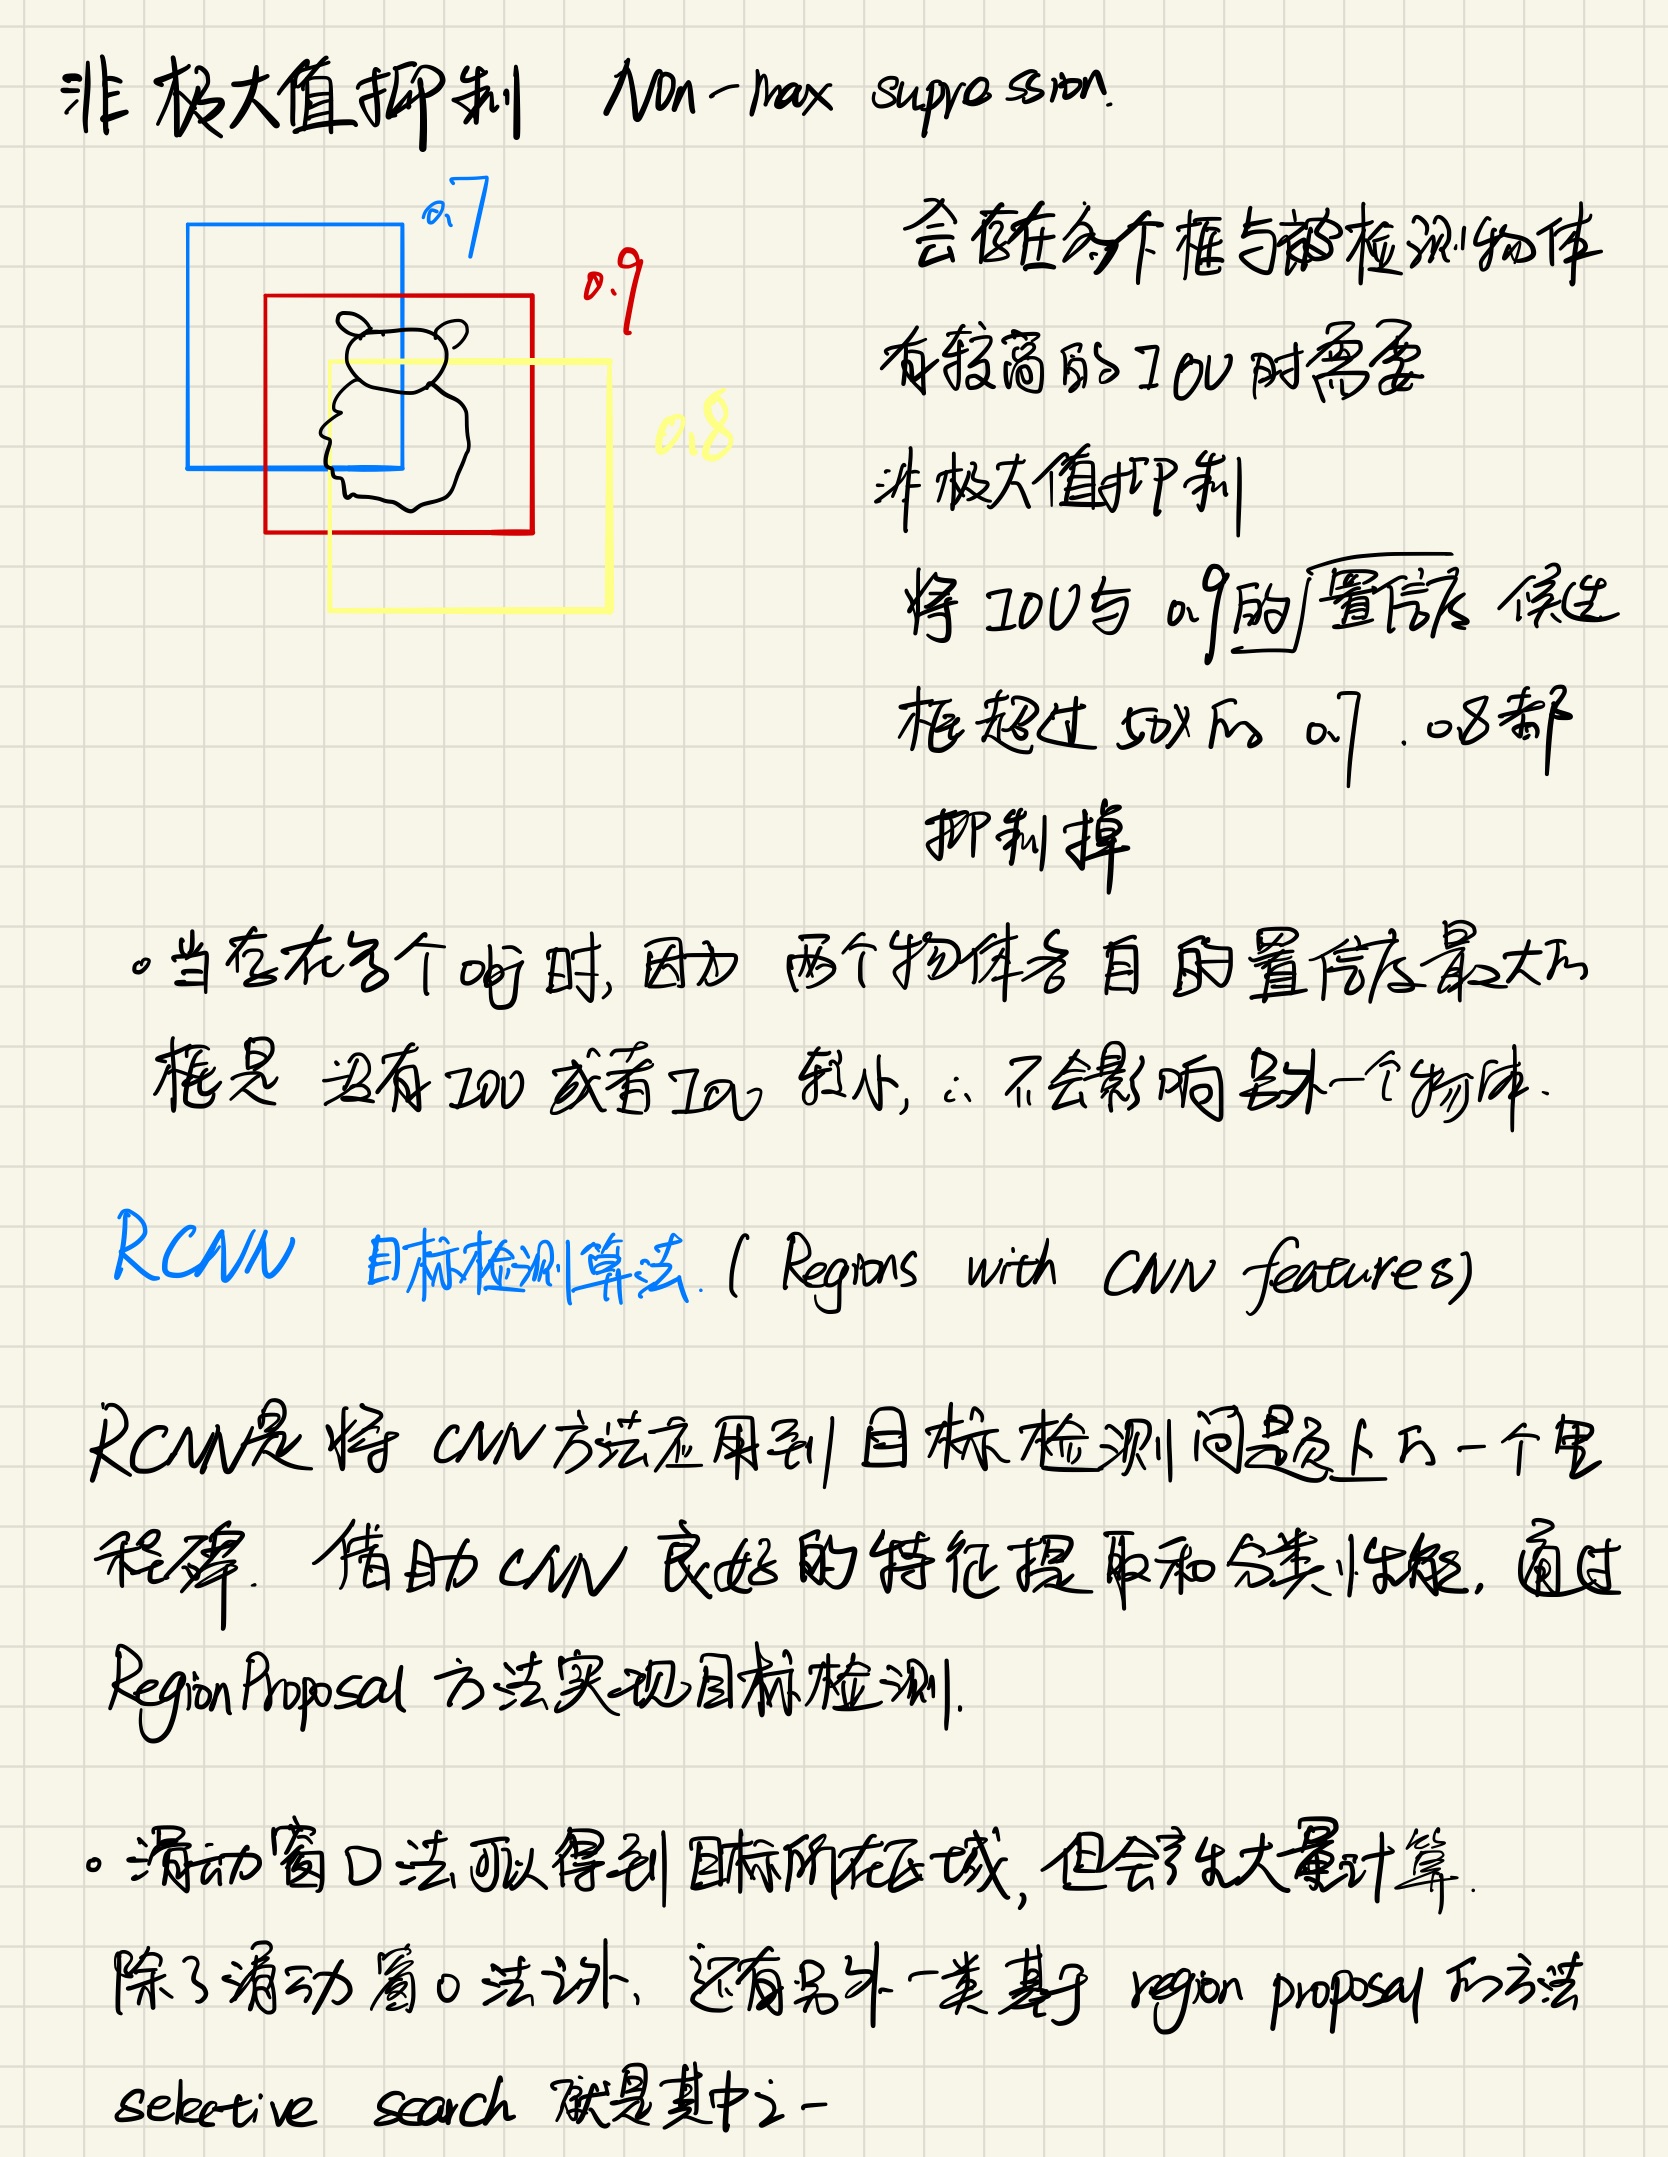 非极大值抑制 Non-max supression.
0.7
0.9
0.8
会存在多个框与被检测物体
有较高的IOU时需要
非极大值抑制
将IOU与0.9的置信度候选
框超过50%的0.7.0.8都
抑制掉
。当存在多个obj时,因为两个物体各自的置信度最大的
框是没有IOU或者IOU较小,∴不会影响另外一个物体.
RCNN 目标检测算法.(Regions with CNN features)
RCNN是将CNN方法应用到目标检测问题上的一个里
程碑.借助CNN良好的特征提取和分类性能.通过
RegionProposal方法实现目标检测.
。滑动窗口法可以得到目标所在区域,但会产生大量计算.
除了滑动窗口法以外、还有另外一类基于region proposal的方法
selective search 就是其中之一